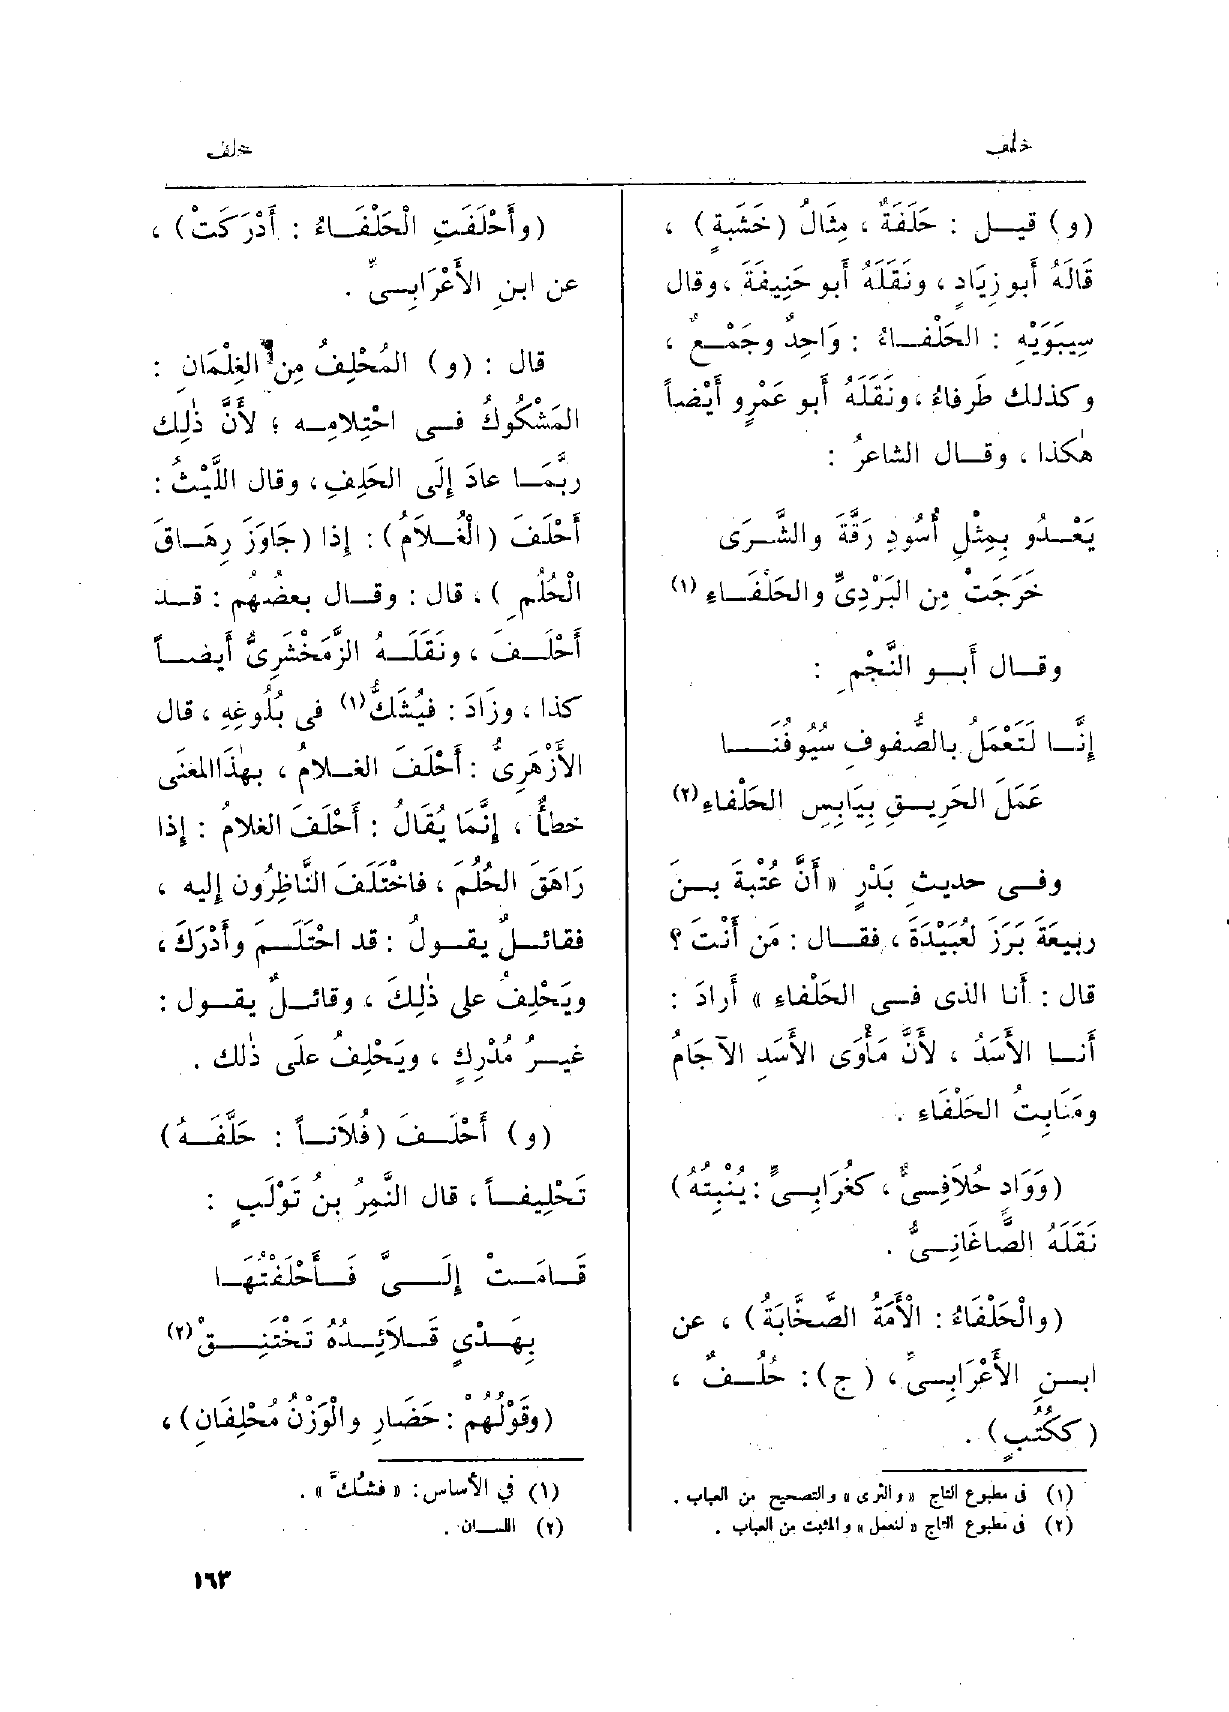 حلف
حلف
(و) قيــل : حَلَفَةٌ ، مِثَالُ (خَشَبَةٍ) ،
قَالَهُ أبو زِيَادٍ ، ونَقَلَهُ أبو حَنِيفَةَ ، وقال
سِيبَوَيْهِ : الحَلْفَــاءُ : وَاحِدٌ وجَمْــعٌ ،
وكذلك طَرفاءُ ، ونَقَلَهُ أبو عَمْرٍو أَيْضاً
هٰكذا ، وقــال الشاعرُ :
يَعْــدُو بِمِثْلِ أُسُودِ رَقَّةَ والشَّــرَى
خَرَجَتْ مِن البَرْدِىِّ والحَلْفَــاءِ (١)
وقــال أَبــو النَّجْمِ :
إِنَّــا لَتَعْمَلُ بالصُّفوفِ سُيُوفُنَــــا
عَمَلَ الحَرِيــقِ بِيَابِسِ الحَلْفاءِ (٢)
وفــى حديثِ بَدْرٍ « أَنَّ عُتْبَةَ بــنَ
ربيعَةَ بَرَزَ لعُبَيْدَةَ ، فقــال : مَن أَنْتَ ؟
قال : أَنا الذى فــى الحَلْفاءِ » أَرادَ :
أَنــا الأَسَدُ ، لأَنَّ مَأْوَى الأَسَدِ الآجَامُ
ومَنَابِتُ الحَلْفَاءِ .
(وَوَادٍ حُلاَفِــىٌّ ، كغُرَابِــىٍّ : يُنْبِتُهُ)
نَقَلَهُ الصَّاغَانِــىُّ .
(والْحَلْفَاءُ : الْأَمَةُ الصَّخَّابَةُ) ، عن
ابــنِ الأَعْرَابِــىِّ ، (ج) : حُلُــفٌ ،
(كَكُتُبٍ) .
(١) فى مطبوع التاج « والثرى » والتصحيح من العباب .
(٢) فى مطبوع التاج « لنعمل » والمثبت من العباب .
(وأَحْلَفَتِ الْحَلْفَــاءُ : أَدْرَكَتْ) ،
عن ابنِ الأَعْرَابِــىِّ .
قال : (و) المُحْلِفُ مِن الغِلْمَانِ :
المَشْكُوكُ فــى احْتِلامِــه ؛ لأَنَّ ذٰلِك
ربَّمَــا عادَ إِلَى الحَلِفِ ، وقال اللَّيْثُ :
أَحْلَفَ (الْغُــلاَمُ) : إِذا (جَاوَزَ رِهَــاقَ
الْحُلُمِ ) ، قال : وقــال بعضُهُم : قــد
أَحْلَــفَ ، ونَقَلَــهُ الزَّمَخْشَرِىُّ أَيضــاً
كذا ، وزَادَ : فيُشَكُّ (١) فى بُلُوغِهِ ، قال
الأَزْهَرِىُّ : أَحْلَفَ الغــلامُ ، بهٰذَا المعنَى
خطأٌ ، إِنَّمَا يُقَالُ : أَحْلَفَ الغلامُ : إِذا
رَاهَقَ الحُلُمَ ، فاخْتَلَفَ النَّاظِرُون إليه ،
فقائــلٌ يقــولُ : قد احْتَلَــمَ وأَدْرَكَ ،
ويَحْلِفُ على ذٰلِكَ ، وقائــلٌ يقــول :
غيــرُ مُدْرِكٍ ، ويَحْلِفُ علَى ذٰلك .
(و) أَحْلَــفَ (فُلاَنــاً : حَلَّفَــهُ)
تَحْلِيفــاً ، قال النَّمِرُ بنُ تَوْلَبٍ :
قَــامَــتْ إِلَــــىَّ فَــأَحْلَفْتُهَــا
بِهَــدْىٍ قَــلاَئِــدُهُ تَخْتَنِــــقْ (٢)
(وقَوْلُهُمْ : حَضَارِ والْوَزْنُ مُحْلِفَانِ) ،
(١) في الأساس : « فشك » .
(٢) اللســان .
١٦٣